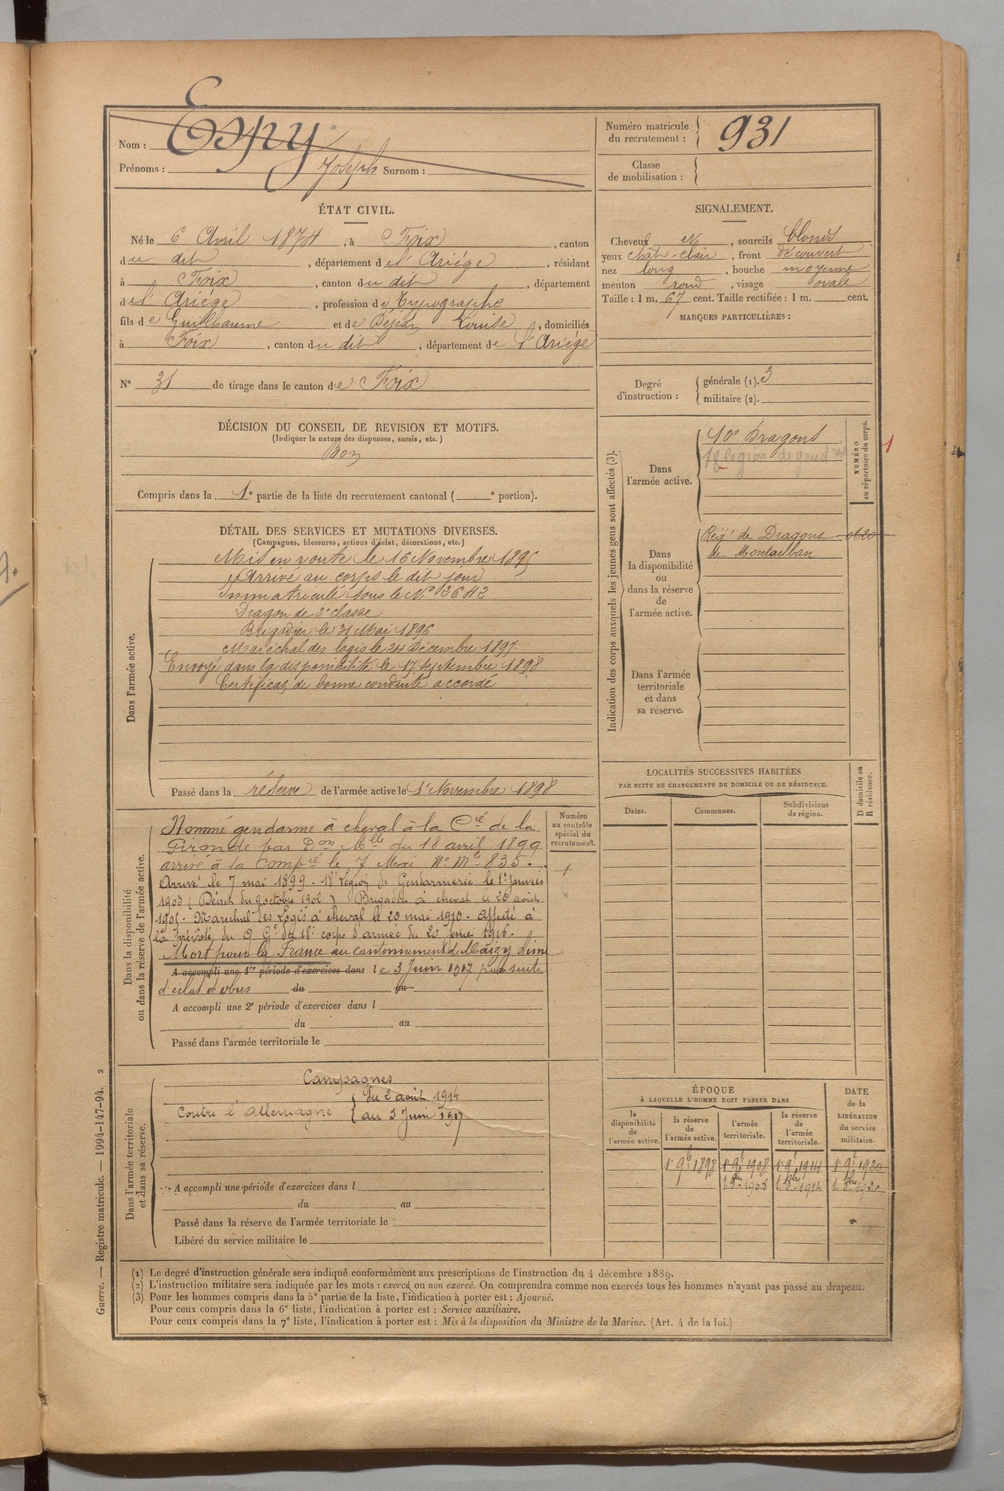 Nom : Espy
Prénoms : Joseph Surnom :
Numéro matricule du recrutement : 931
Classe de mobilisation :
ÉTAT CIVIL.
Né le 6 Avril 1874, à Foix, canton
du dit, département de l'Ariège, résidant
à Foix, canton du dit, département
de l'Ariège, profession de Typographe
fils de Guilhaume et de Dejean Louise, domiciliés
à Foix, canton du dit, département de l'Ariége
N° 31 de tirage dans le canton de Foix
SIGNALEMENT.
Cheveux et, sourcils blonds
yeux chât-clair, front découvert
nez long, bouche moyenne
menton rond, visage ovale
Taille : 1 m. 67 cent. Taille rectifiée : 1 m. cent.
MARQUES PARTICULIÈRES :
Degré d'instruction : générale (1). 3
militaire (2).
DÉCISION DU CONSEIL DE REVISION ET MOTIFS.
(Indiquer la nature des dispenses, sursis, etc.)
Bon
Compris dans la 1e partie de la liste du recrutement cantonal ( e portion).
DÉTAIL DES SERVICES ET MUTATIONS DIVERSES.
(Campagnes, blessures, actions d'éclat, décorations, etc.)
Dans l'armée active.
Mis en route le 16 Novembre 1895
Arrivé au corps le dit jour
Immatriculé sous le N° 3642
Dragon de 2e classe
Brigadier le 31 Mai 1896
Maréchal des logis le 24 Décembre 1897
Envoyé dans la disponibilité le 17 Septembre 1898
Certificat de bonne conduite accordé
Passé dans la réserve de l'armée active le 1er Novembre 1898
Indication des corps auxquels les jeunes gens sont affectés (3).
NUMÉRO au répertoire du corps.
Dans l'armée active.
10e Dragons
18 légion de gend
1
Dans la disponibilité ou dans la réserve de l'armée active.
Régt de Dragons
de Montauban
Dans l'armée territoriale et dans sa réserve.
LOCALITÉS SUCCESSIVES HABITÉES
PAR SUITE DE CHANGEMENTS DE DOMICILE OU DE RÉSIDENCE.
Dates. Communes. Subdivisions de région. D domicile ou R résidence.
Dans la disponibilité ou dans la réserve de l'armée active.
Numéro au contrôle spécial du recrutement.
1
Nommé gendarme à cheval à la Cie de la
Gironde par Don Mlle du 18 avril 1899
arrivé à la Compie le 7 Mai N° Mle 835.
Arrivé le 7 mai 1899. 18e Légion de Gendarmerie le 1er Janvier
1903 (Décis. du 9 octobre 1902) Brigadier à cheval le 20 août
1905 - Maréchal des Logis à cheval le 20 mai 1910 - affecté à
la prévôté du Q. Gl du 18e corps d'armée du 1916.
Mort pour la France au cantonnement de Maizy Aisne
A accompli une 1re période d'exercices dans l
le 3 Juin 1917 par suite
d'éclat d'obus
du au
A accompli une 2e période d'exercices dans l
du au
Passé dans l'armée territoriale le
Dans l'armée territoriale et dans sa réserve.
Campagnes
Contre l'Allemagne
du 2 août 1914
au 3 Juin 1917
A accompli une période d'exercices dans l
du au
Passé dans la réserve de l'armée territoriale le
Libéré du service militaire le
ÉPOQUE
À LAQUELLE L'HOMME DOIT PASSER DANS
la disponibilité de l'armée active. la réserve de l'armée active. l'armée territoriale. la réserve de l'armée territoriale.
DATE de la LIBÉRATION du service militaire.
1er 9bre 1898 1er 9bre 1908 1er 9bre 1914 1er 9bre 1920
(1) Le degré d'instruction générale sera indiqué conformément aux prescriptions de l'instruction du 4 décembre 1889.
(2) L'instruction militaire sera indiquée par les mots : exercé ou non exercé. On comprendra comme non exercés tous les hommes n'ayant pas passé au drapeau.
(3) Pour les hommes compris dans la 5e partie de la liste, l'indication à porter est : Ajourné.
Pour ceux compris dans la 6e liste, l'indication à porter est : Service auxiliaire.
Pour ceux compris dans la 7e liste, l'indication à porter est : Mis à la disposition du Ministre de la Marine. (Art. 4 de la loi.)
Guerre. — Registre matricule. — 1994-147-94. 2